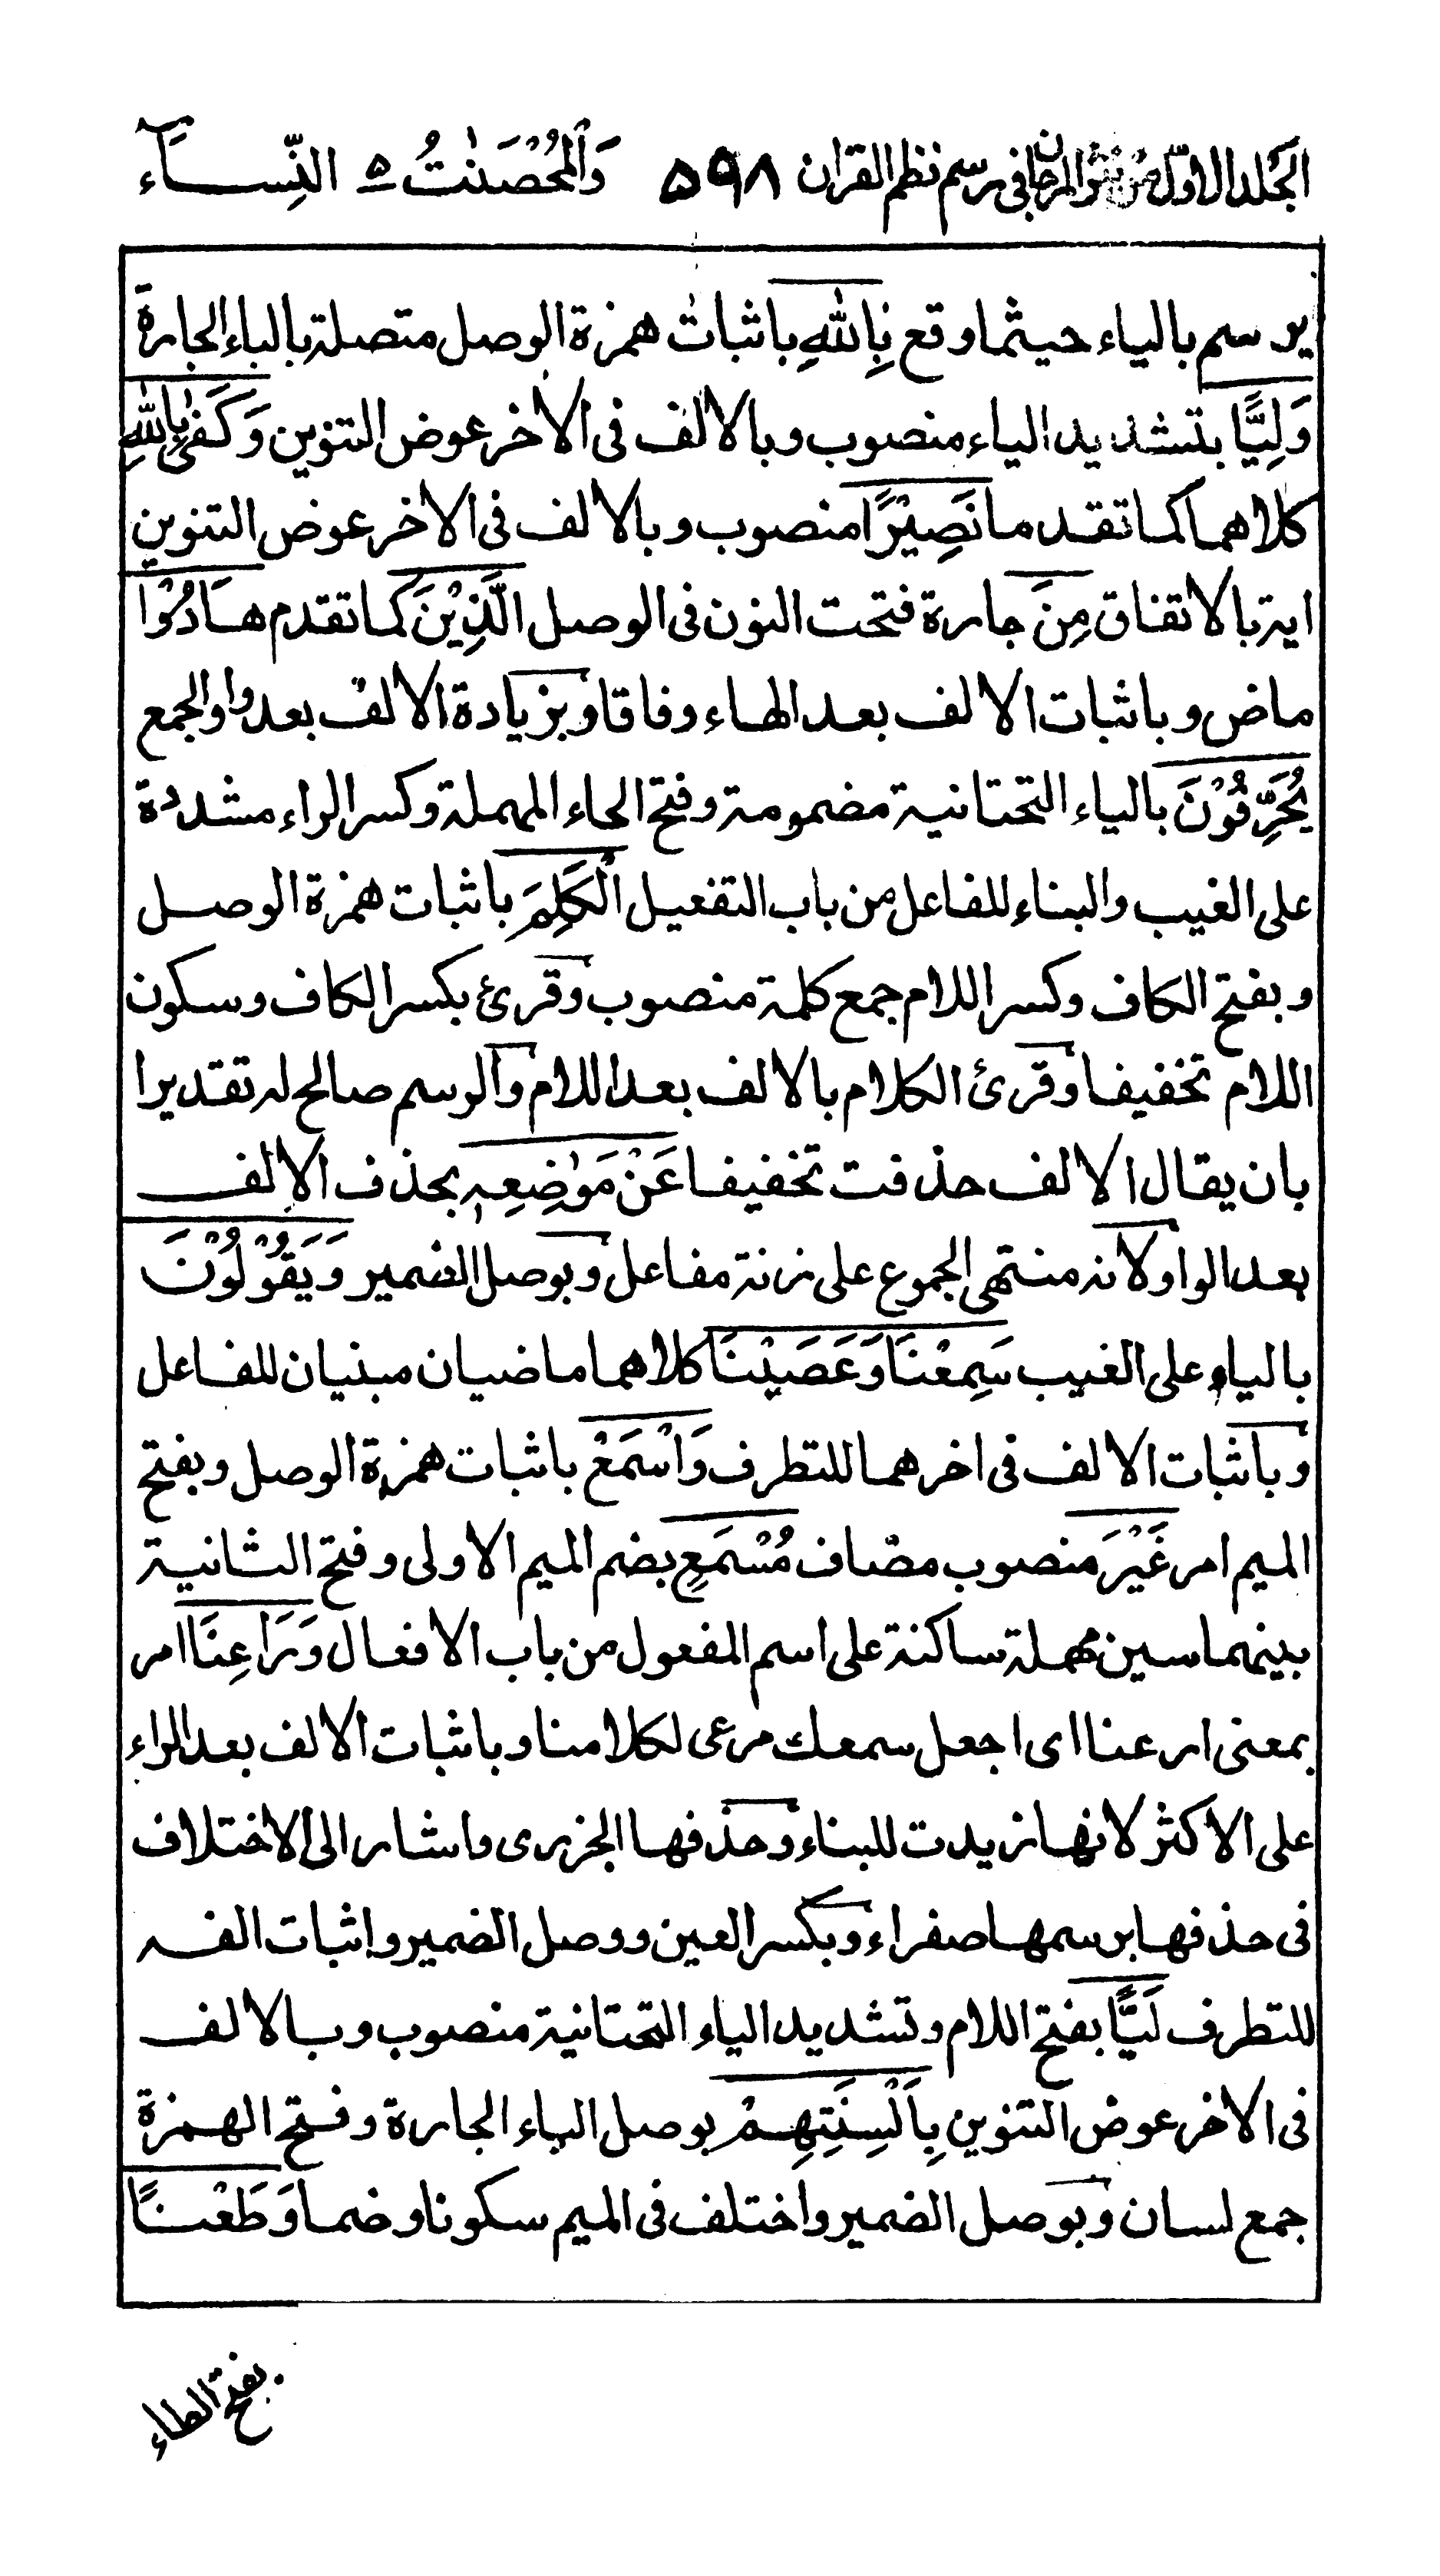 الجلد الاوّل من نثر المرجان فی رسم نظم القران ۵۹۸ وَالْمُحْصَنٰتُ ۵ النِّسَآء
يرسم بالياء حيثما وقع بِاللهِ باثبات همزة الوصل متصلة بالباء الجارة
وَلِيًّا بتشديد الياء منصوب وبالالف فى الاخر عوض التنوين وَكَفٰى بِاللهِ
كلاهما كما تقدما نَصِيْرًا منصوب وبالالف فى الاخر عوض التنوين
اية بالاتفاق مِنَ جارة فتحت النون فى الوصل الَّذِيْنَ كما تقدم هَادُوْا
ماض وباثبات الالف بعد الهاء وفاقا وبزيادة الالف بعد واو الجمع
يُحَرِّفُوْنَ بالياء التحتانية مضمومة وفتح الحاء المهملة وكسر الراء مشددة
على الغيب والبناء للفاعل من باب التفعيل الْكَلِمَ باثبات همزة الوصل
وبفتح الكاف وكسر اللام جمع كلمة منصوب وقرئ بكسر الكاف وسكون
اللام تخفيفا وقرئ الكلام بالالف بعد اللام والرسم صالح له تقديرا
بان يقال الالف حذفت تخفيفا عَنْ مَوٰضِعِهٖ بحذف الالف
بعد الواو لانه منتهى الجموع على زنة مفاعل وبوصل الضمير وَيَقُوْلُوْنَ
بالياء على الغيب سَمِعْنَا وَعَصَيْنَا كلاهما ماضيان مبنيان للفاعل
وباثبات الالف فى اخرهما للتطرف وَاسْمَعْ باثبات همزة الوصل وبفتح
الميم امر غَيْرَ منصوب مضاف مُسْمَعٍ بضم الميم الاولى وفتح الثانية
بينهما سين مهملة ساكنة على اسم المفعول من باب الافعال وَرَاعِنَا امر
بمعنى ارعنا اى اجعل سمعك مرعى لكلامنا وباثبات الالف بعد الراء
على الاكثر لانها زيدت للبناء وحذفها الجزرى واشار الى الاختلاف
فى حذفها برسمها صفراء وبكسر العين ووصل الضمير واثبات الفه
للتطرف لَيًّا بفتح اللام وتشديد الياء التحتانية منصوب وبالالف
فى الاخر عوض التنوين بِاَلْسِنَتِهِمْ بوصل الباء الجارة وفتح الهمزة
جمع لسان وبوصل الضمير واختلف فى الميم سكونا وضما وَطَعْنًا
بفتح الطاء